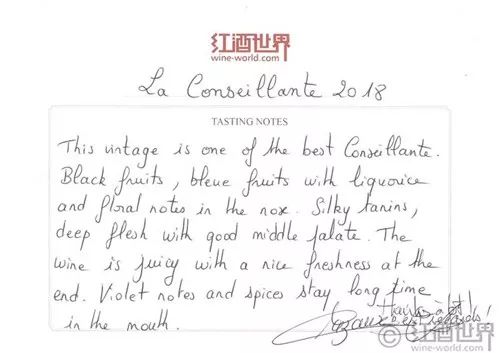 红酒世界
wine-world.com
La Conseillante 2018
TASTING NOTES
This vintage is one of the best Conseillante.
Black fruits, bleue fruits with liquorice
and floral notes in the nose. Silky tanins,
deep flesh with good middle palate. The
wine is juicy with a nice freshness at the
end. Violet notes and spices stay long time
in the mouth.
红酒世界
wine-world.com